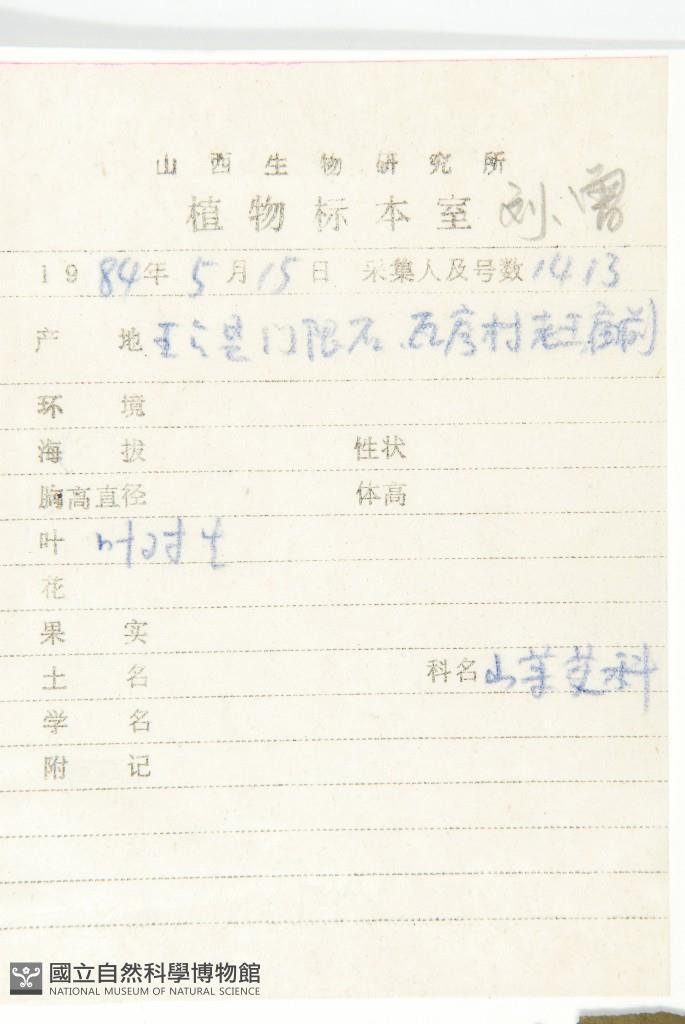 山西生物研究所
植物标本室 刘、
1984年5月15日 采集人及号数 1413
产地 门限石 瓦房村
环境
海拔 性状
胸高直径 体高
叶 叶对生
花
果实
土名 科名 山茱萸科
学名
附记
國立自然科學博物館
NATIONAL MUSEUM OF NATURAL SCIENCE